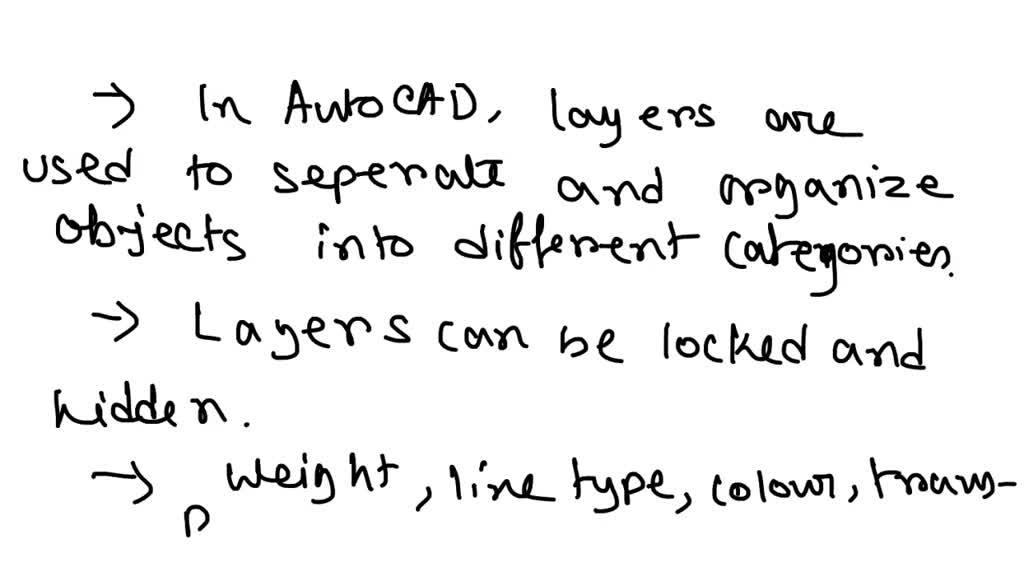 → In AutoCAD, layers are
used to seperate and organize
objects into different categories.
→ Layers can be locked and
hidden.
→ weight, line type, colour, trans-
p